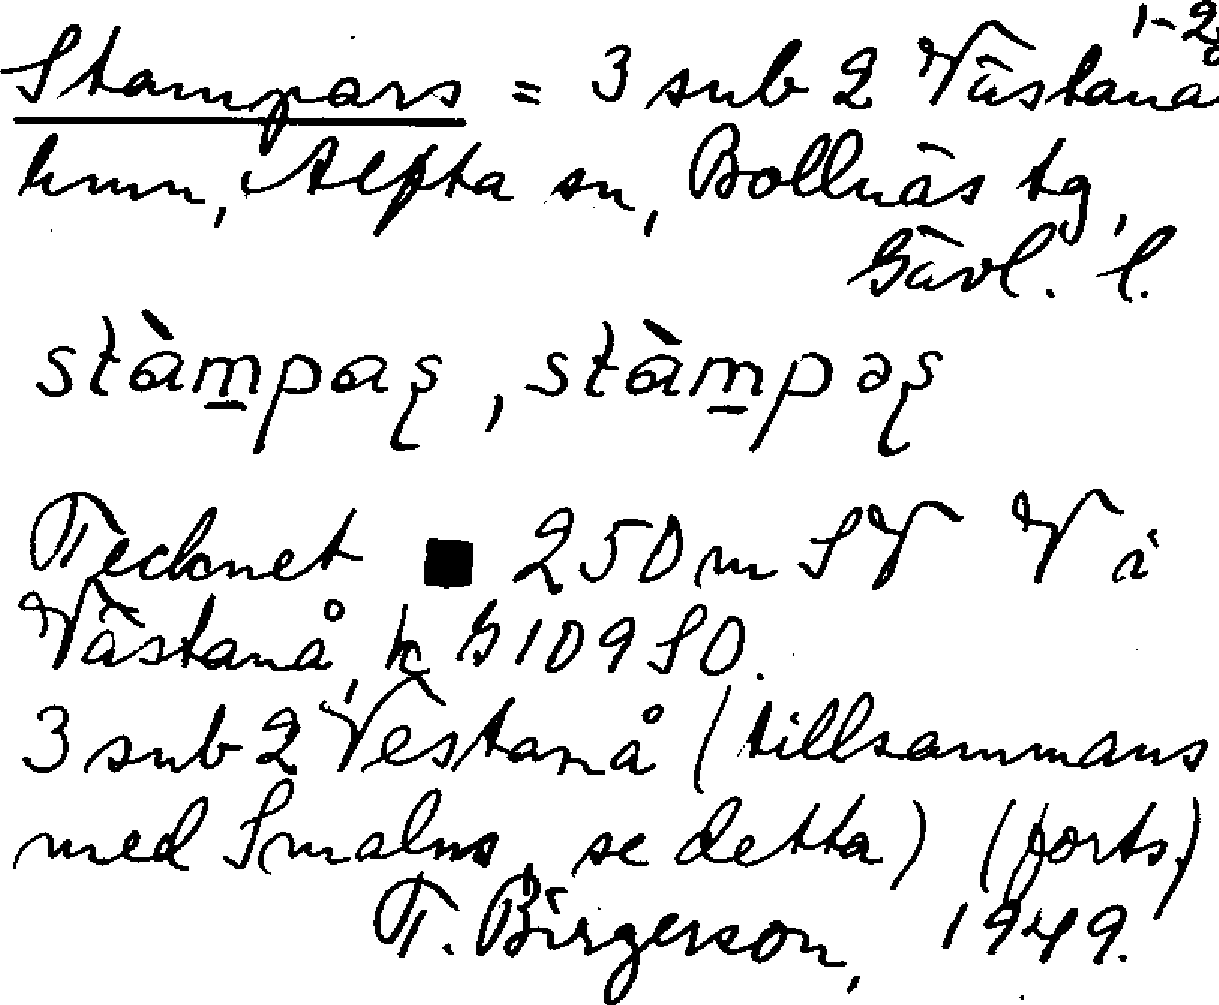 1-2
Stampars = 3 sub 2 Västanå
hmn, Alfta sn, Bollnäs tg,
Gävl. l.
stàm̲paʂ, stàm̲pəʂ
Tecknet ■ 250 m SV V i
Västanå, k G 109 SO.
3 sub 2 Vestanå (tillsammans
med Smalns, se detta) (forts.)
T. Birgerson, 1949.